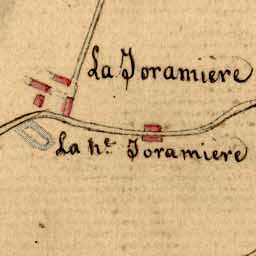 La Joramière
La h.te Joramière